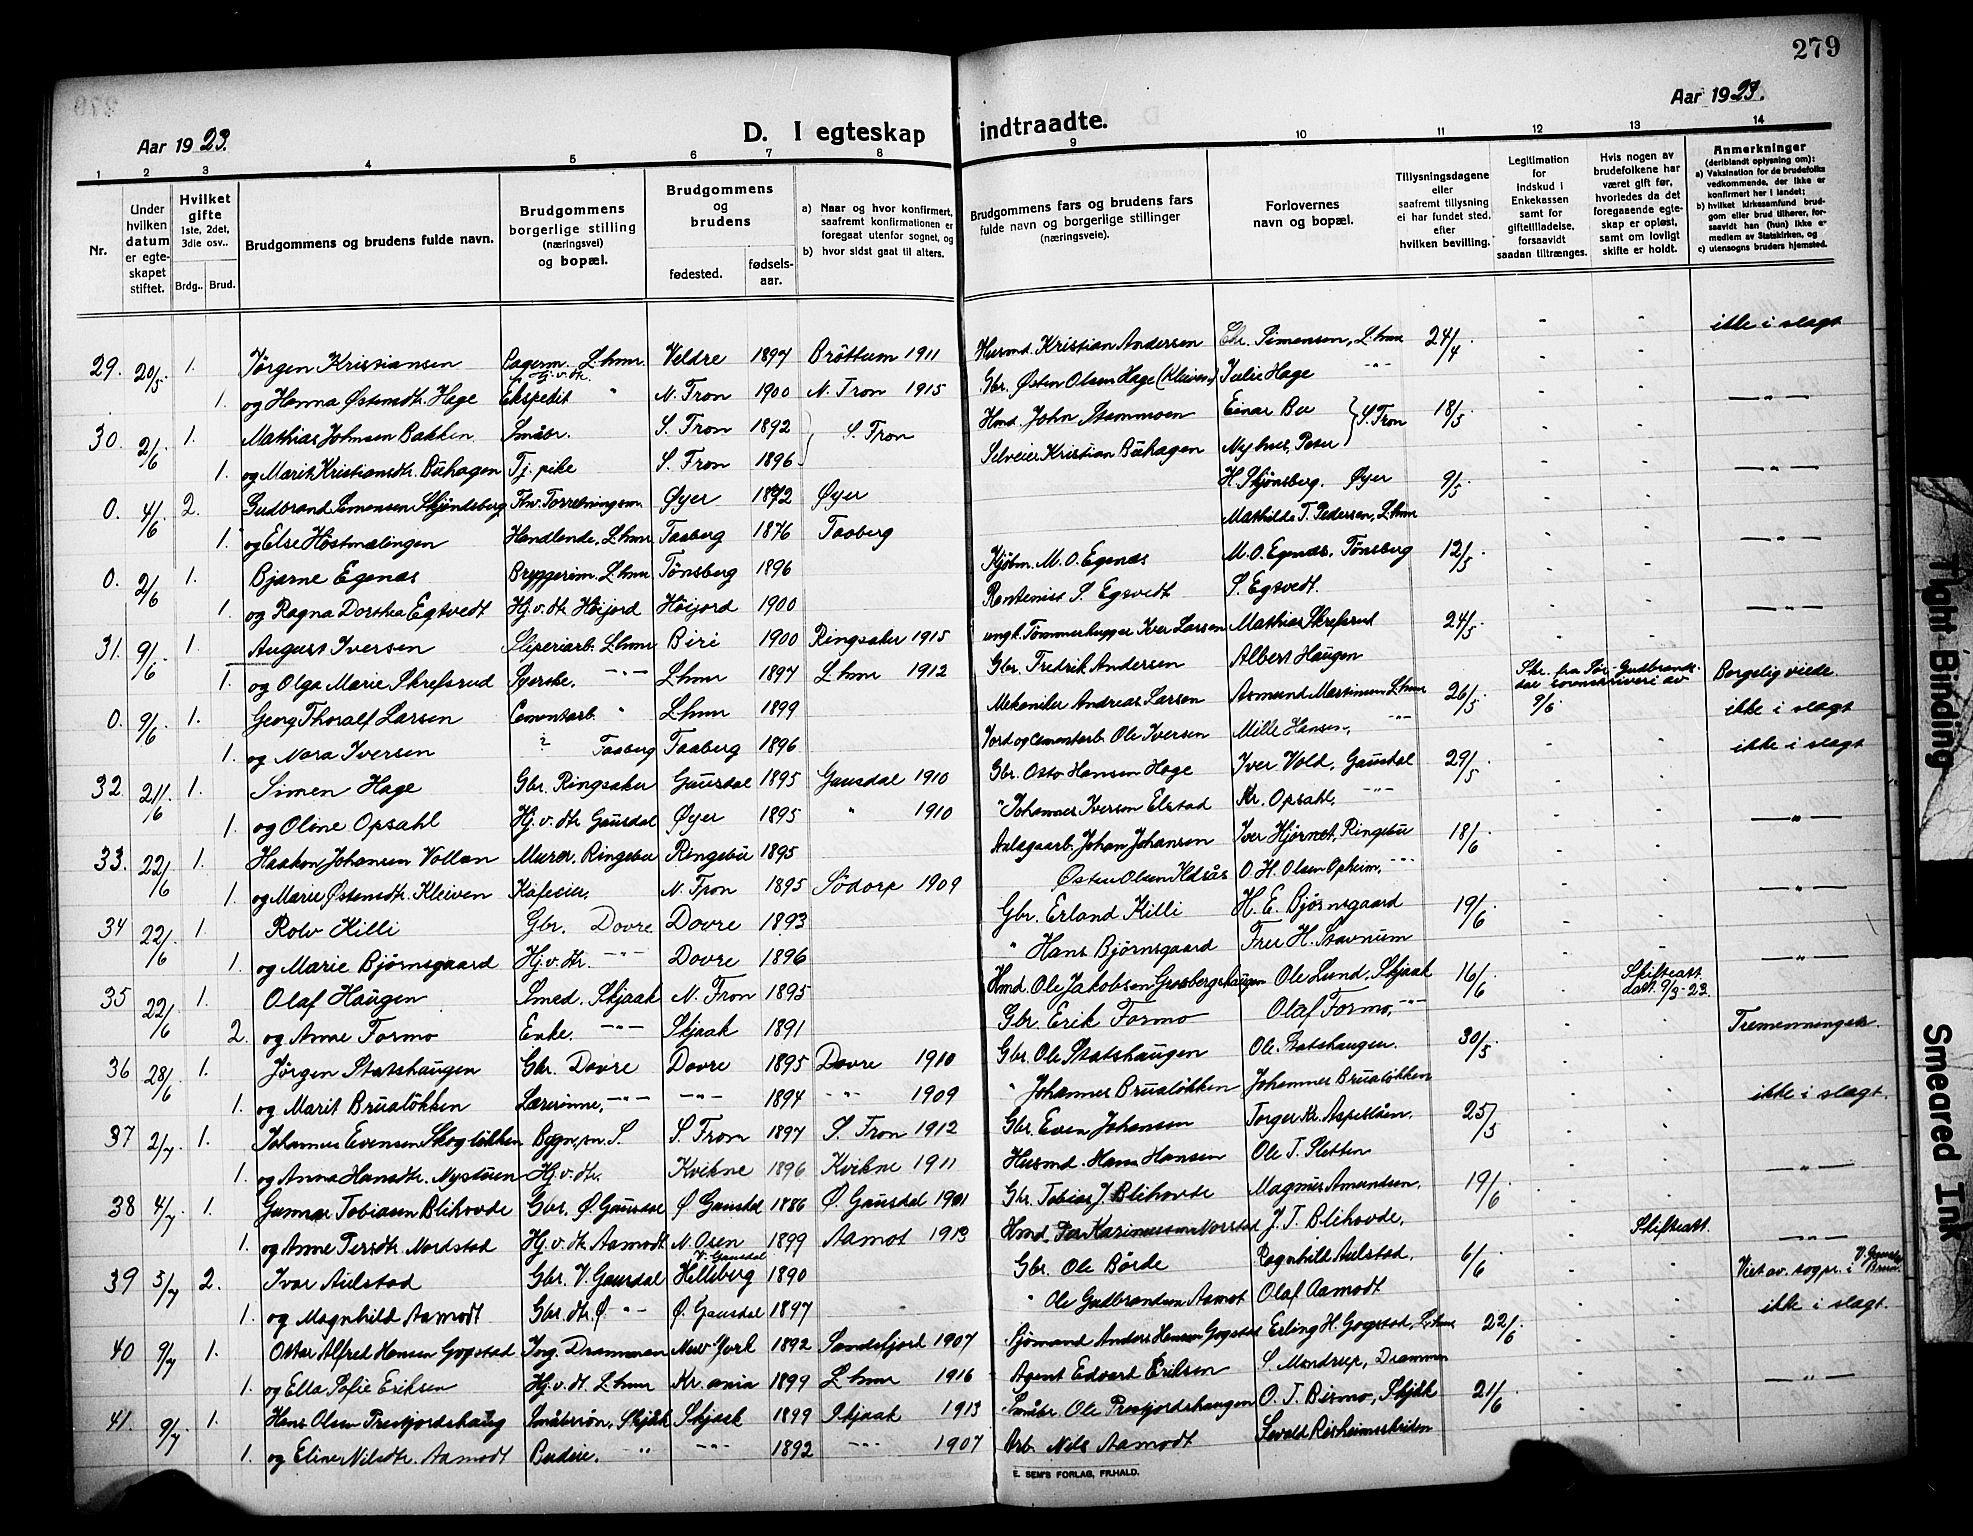 279
Aar 1923.
D. I egteskap indtraadte.
Aar 1923.
1 2 3 4 5 6 7 8 9 10 11 12 13 14
Nr.
Under hvilken datum er egteskapet stiftet.
Hvilket gifte 1ste, 2det, 3die osv..
Brdg.. Brud.
Brudgommens og brudens fulde navn.
Brudgommens borgerlige stilling (næringsvei) og bopæl.
Brudgommens og brudens
fødested. fødsels-aar.
a) Naar og hvor konfirmert, saafremt konfirmationen er foregaat utenfor sognet, og
b) hvor sidst gaat til alters.
Brudgommens fars og brudens fars fulde navn og borgerlige stillinger (næringsveie).
Forlovernes navn og bopæl.
Tillysningsdagene eller saafremt tillysning ei har fundet sted. efter hvilken bevilling.
Legitimation for Indskud i Enkekassen samt for giftetilladelse, forsaavidt saadan tiltrænges.
Hvis nogen av brudefolkene har været gift før, hvorledes da det foregaaende egteskap er opløst, samt om lovligt skifte er holdt.
Anmerkninger (deriblandt oplysning om):
a) Vaksination for de brudefolks vedkommende, der ikke er konfirmert her i landet;
b) hvilket kirkesamfund brudgom eller brud tilhører, forsaavidt han (hun) ikke er medlem av Statskirken, og
c) utensogns bruders hjemsted.
29. 20/5. 1. Jørgen Kristiansen Lagerm. L.hmr Veldre 1897 Brøttum 1911 Husmd. Kristian Andersen Chr. Simensen, L.hmr 24/4 - - ikke i slagt
1. og Hanna Østensdtr. Hage Ekspedit " N. Fron 1900 N. Fron 1915 Gbr. Østen Olsen Hage (Kleiven) Julie Hage -"-
30. 2/6 1. Mathias Johnsen Bakken Småbr. S. Fron 1892 S. Fron Hmd. John Stammoen Einar Bu S. Fron 18/5 -"-
1. og Marit Kristiansdtr. Buhagen Tj. pike S. Fron 1896 Selveier Kristian Buhagen Nyhus, Peter
0. 4/6 2. Gudbrand Simensen Skjøndsberg Øyer 1872 Øyer H. Skjønsberg. Øyer 9/5 -"-
1. og Else Høstmælingen Handlende, L.hmr Faaberg 1876 Faaberg Mathilde T. Pedersen, L.hmr
0. 2/6 1. Bjarne Egenæs Bryggerim. L.hmr Tønsberg 1896 Kjøbm. M. O. Egenæs M. O. Egenæs, Tønsberg 12/5 -"-
1. og Ragna Dorthea Egtvedt Hj.v. dtr Høijord Høijord 1900 Rentenist S. Egtvedt S. Egtvedt.
31. 9/6 1. August Iversen Sliperiarb. L.hmr Biri 1900 Ringsaker 1915 ungk. Tømmerhugger Iver Larsen Mathias Skrefsrud 24/5 -"-
1. og Olga Marie Skrefsrud Syerske. -"- L.hmr 1897 L.hmr 1912 Gbr. Fredrik Andersen Albert Haugen
0. 9/6 1. Georg Thoralf Larsen Cementarb. " L.hmr 1899 Mekaniker Andreas Larsen Asmund Martinsen L.hmr 26/5 Skr. fra Sør-Gudbrandsdal sorenskriveri av 9/6 Borgelig viede. ikke i slagt
1. og Nora Iversen Faaberg Faaberg 1896 Jord og Cementarb. Ole Iversen Mille Hansen, -"-
32. 21/6 1. Simen Hage Gbr. Ringsaker Gausdal 1895 Gausdal 1910 Gbr. Otto Hansen Hage Iver Vold, Gausdal 29/5 ikke i slagt
1. og Oline Opsahl Hj.v. dtr Gausdal Øyer 1895 " 1910 " Johannes Iversen Elstad Kr. Opsahl, -"-
33. 22/6 1. Haakon Johansen Vollan Murer, Ringebu Ringebu 1895 Anlægsarb. Johan Johansen Iver Hjørnet, Ringebu 18/6 -"-
1. og Marie Østensdtr. Kleiven Kafeeier, N. Fron 1895 Sødorp 1909 Østen Olsen Ildsås O. H. Olsen Opheim, -"-
34 22/6 1. Rolv Killi Gbr. Dovre Dovre 1893 Gbr. Erland Killi H. E. Bjørnsgaard 19/6 -"-
1. og Marie Bjørnsgaard Hj.v.dtr. -"- Dovre 1896 " Hans Bjørnsgaard Fru H. Stavnum
35 22/6 1. Olaf Haugen Smed. Skjaak N. Fron 1895 Hmd. Ole Jakobsen Graabergshaugen Ole Lund, Skjaak 16/6 Skifteatt. dat. 9/3-23. -"-
2. og Anne Formo Enke. -"- Skjaak 1891 Gbr. Erik Formo Olaf Formo, -"-
36 28/6 1. Jørgen Statshaugen Gbr. Dovre Dovre 1895 Dovre 1910 Gbr. Ole Statshaugen Ole Statshaugen. 30/5 Tremenninger.
1. og Marit Brualøkken Lærerinne, -"- -"- 1894 -"- 1909 " Johannes Brualøkken Johannes Brualøkken
37 2/7 1. Johannes Evensen Skogløkken Bygn.sn. S. S. Fron 1897 S. Fron 1912 Gbr. Even Johansen Torger Kr. Aspeslåen. 25/5 ikke i slagt.
1. og Anna Hansdtr. Nystuen Hj.v. dtr. Kvikne 1896 Kvikne 1911 Husmd. Hans Hansen Ole T. Sletten
38 4/7 1. Gunnar Tobiasen Blihovde Gbr. Ø. Gausdal Ø. Gausdal 1886 Ø. Gausdal 1901 Gbr. Tobias J. Blihovde Magnus Amundsen. 19/6 -"-
1. og Anne Persdtr. Nordstad Hj.v. dtr Aamodt N. Osen 1899 Aamot 1913 Hmd. Per Karinusson Norstad J. T. Blihovde.
39 5/7 2. Ivar Aulstad Gbr. V. Gausdal V. Gausdal Helleberg 1890 Gbr. Ole Børde Ragnhild Aulstad, 6/6 Skifteatt. -"-
1. og Magnhild Aamodt Gbr. dtr Ø -"- Ø. Gausdal 1897 " Ole Gudbrandsen Aamot Olaf Aamodt Viet av sogpr. i V. Gausdal Bruun.
40 9/7 1. Ottar Alfred Hansen Gogstad Ing. Drammen New York 1892 Sandefjord 1907 Sjømand Anders Hansen Gogstad Erling H. Gogstad, L.hmr 22/6 ikke i slagt.
1. og Ella Sofie Eriksen Hj.v. dt. L.hmr Kr.ania 1899 L.hmr 1916 Agent Edvard Eriksen S. Mondrup, Drammen
41. 9/7 1. Hans Olsen Prestjordshaug Småbrsøn, Skjåk Skjaak 1899 Skjaak 1913 Småbr. Ole Prestjordshaugen O. T. Bismo, Skjåk 21/6 -"-
1. og Eline Nilsdtr. Aamodt Budeie. " -"- 1892 -"- 1907 Arb. Nils Aamodt Sevald Reisheimskriden
E. SEM'S FORLAG, FR.HALD.
Tight Binding
Smeared Ink